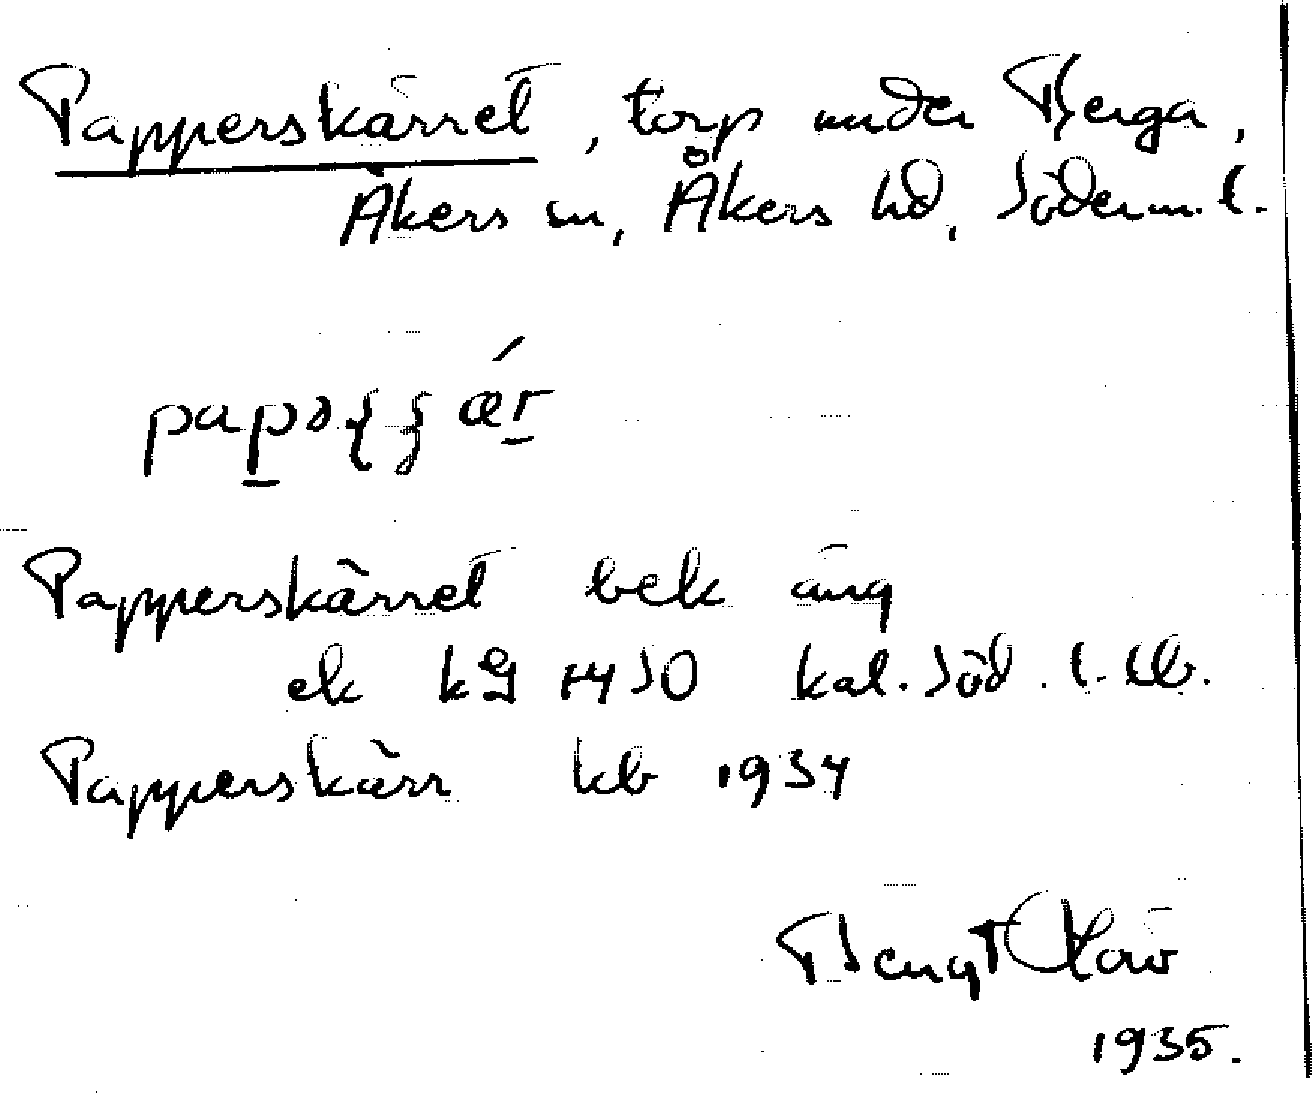 Papperskärret, torp under Berga,
Åkers sn, Åkers hd, Söderm. l.
Papperskärret bek äng
ek kg 1450 kal. Söd. l.
Papperskärr kb 1934
Bengt
1935.